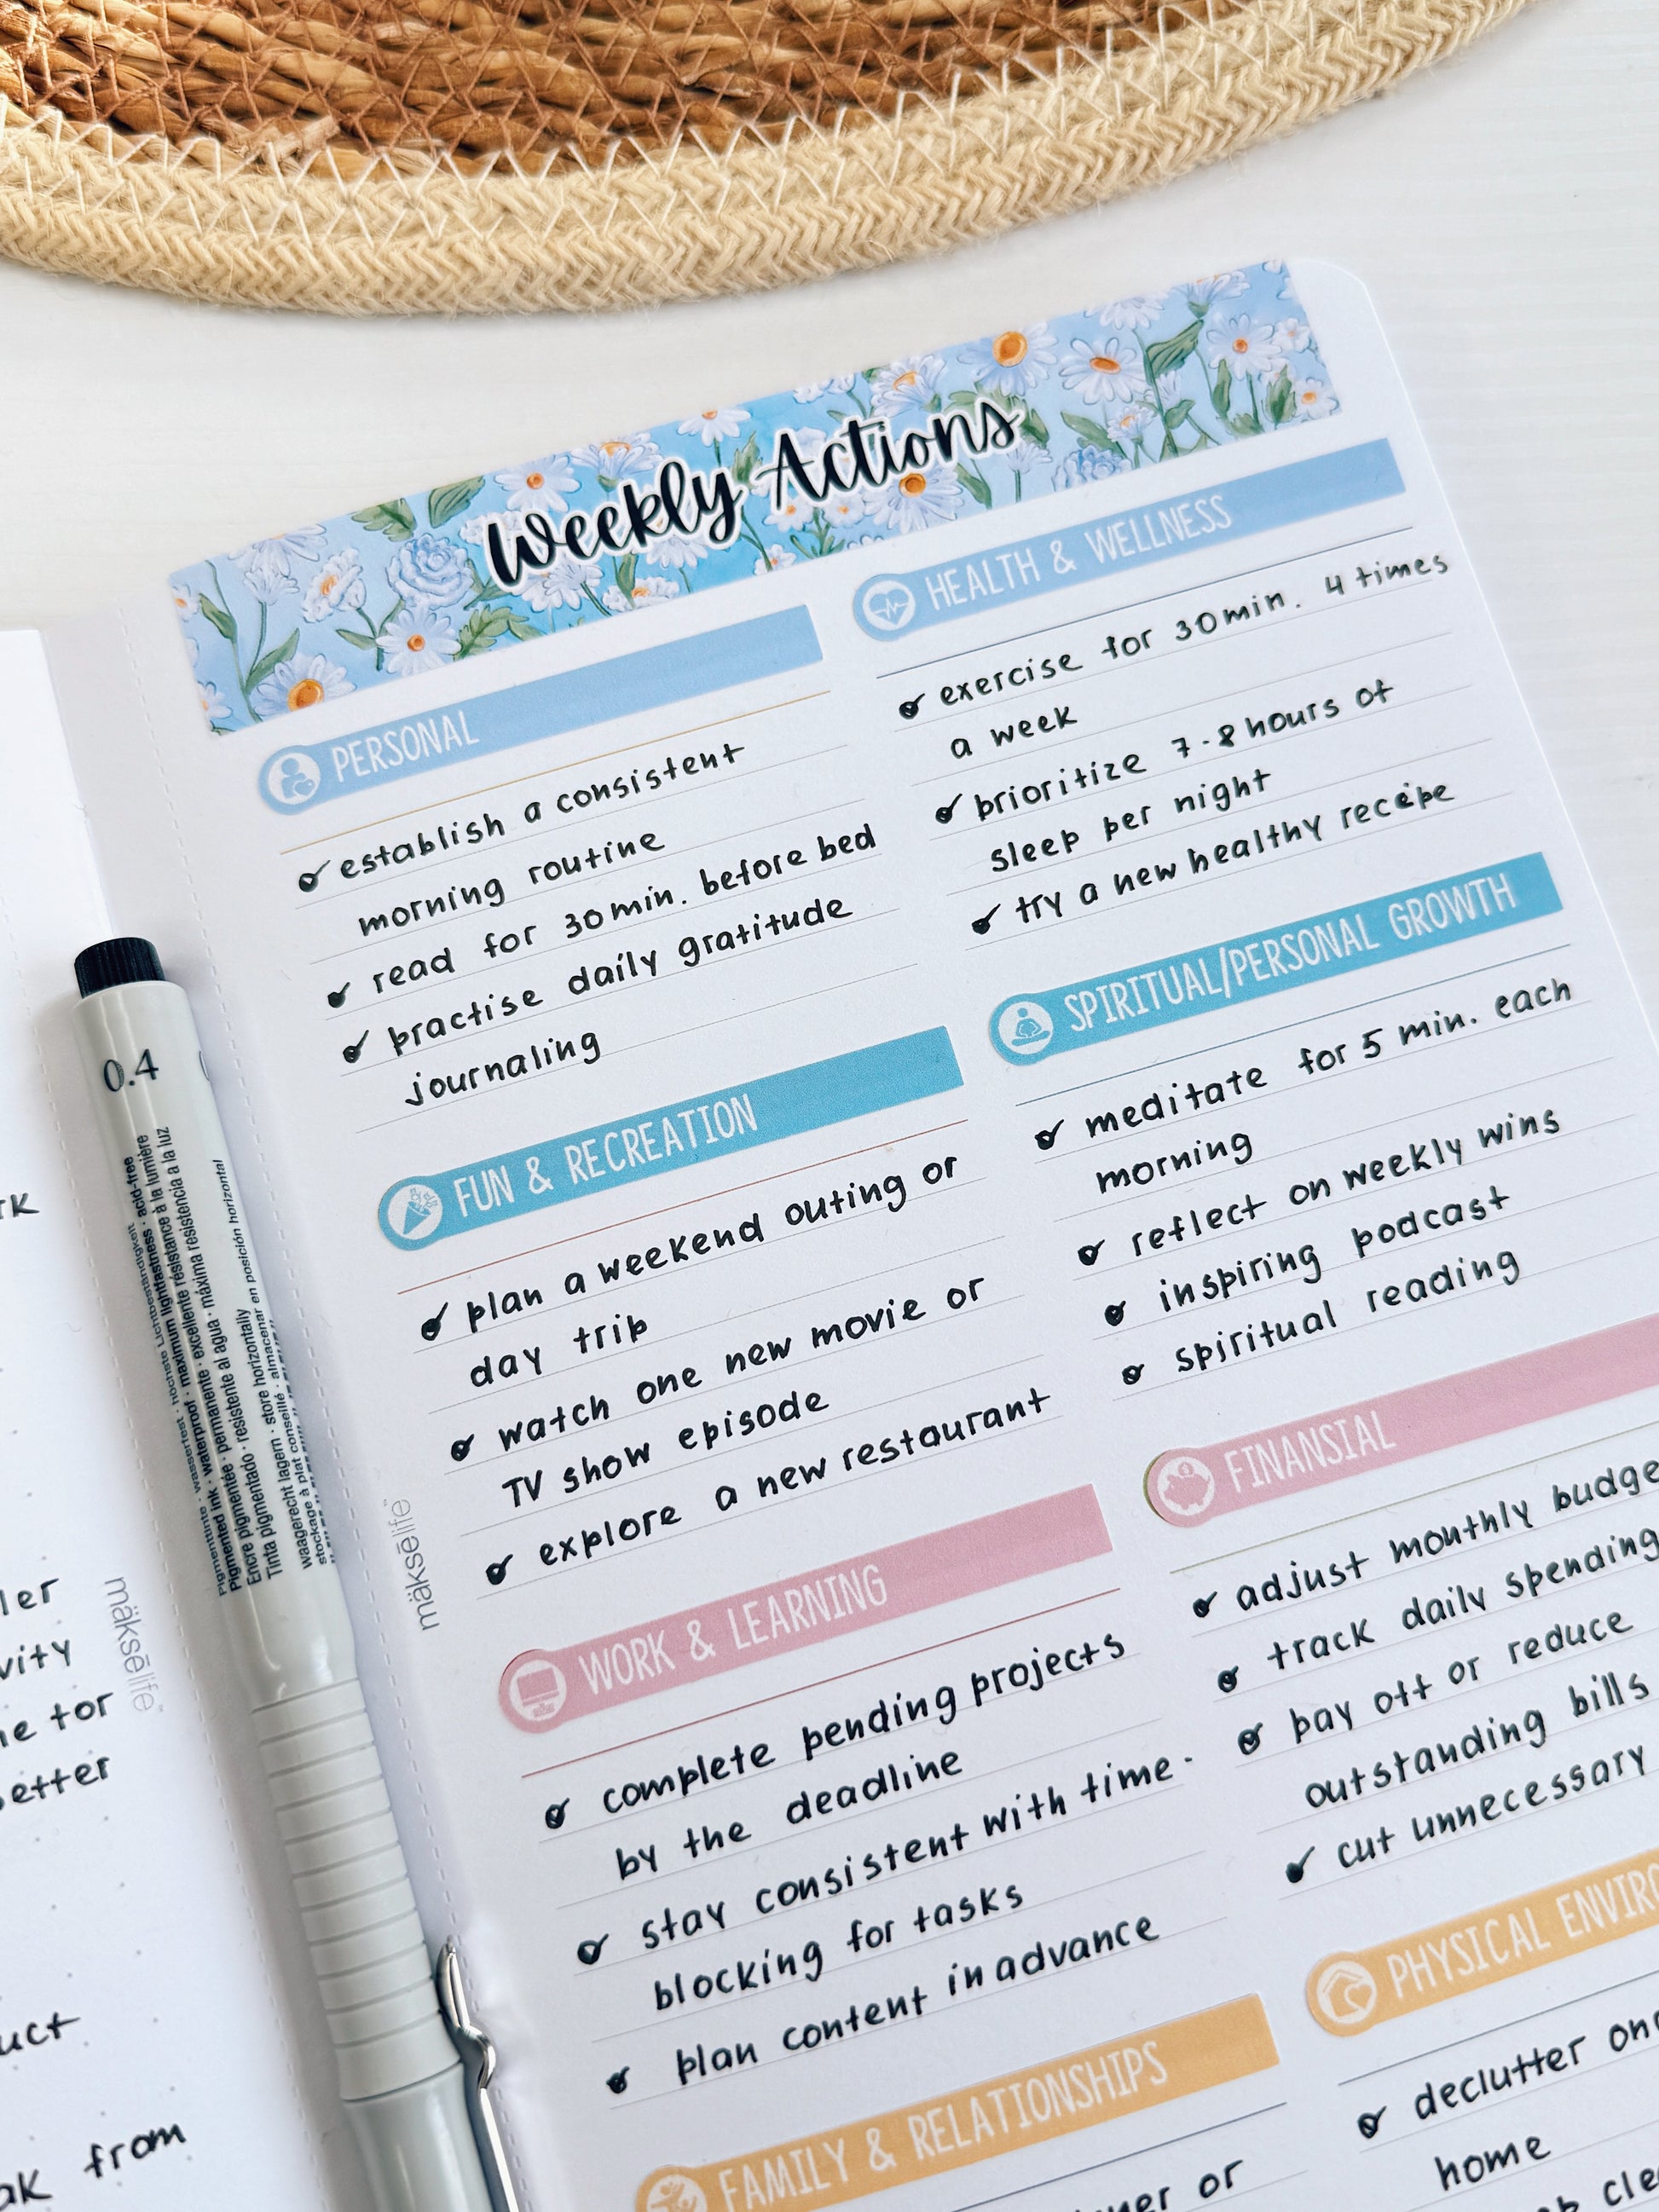 Weekly Actions
PERSONAL
establish a consistent
morning routine
read for 30 min. before bed
practise daily gratitude
journaling
FUN & RECREATION
plan a weekend outing or
day trip
watch one new movie or
TV show episode
explore a new restaurant
WORK & LEARNING
complete pending projects
by the deadline
stay consistent with time-
blocking for tasks
plan content in advance
FAMILY & RELATIONSHIPS
or
HEALTH & WELLNESS
exercise for 30 min. 4 times
a week
prioritize 7-8 hours of
sleep per night
try a new healthy recipe
SPIRITUAL/PERSONAL GROWTH
meditate for 5 min. each
morning
reflect on weekly wins
inspiring podcast
spiritual reading
FINANSIAL
adjust monthly budge
track daily spending
pay off or reduce
outstanding bills
cut unnecessary
PHYSICAL ENVIRO
declutter
home
māksēlife
māksēlife
0.4
Pigmenttinte · wasserfest · höchste Lichtbeständigkeit
Pigmented ink · waterproof · maximum lightfastness · acid-free
Encre pigmentée · permanente · excellente résistance à la lumière
Tinta pigmentado · resistente al agua · máxima resistencia a la luz
waagerecht lagern · store horizontally
stockage à plat conseillé · almacenar en posición horizontal
ler
vity
for
etter
uct
from